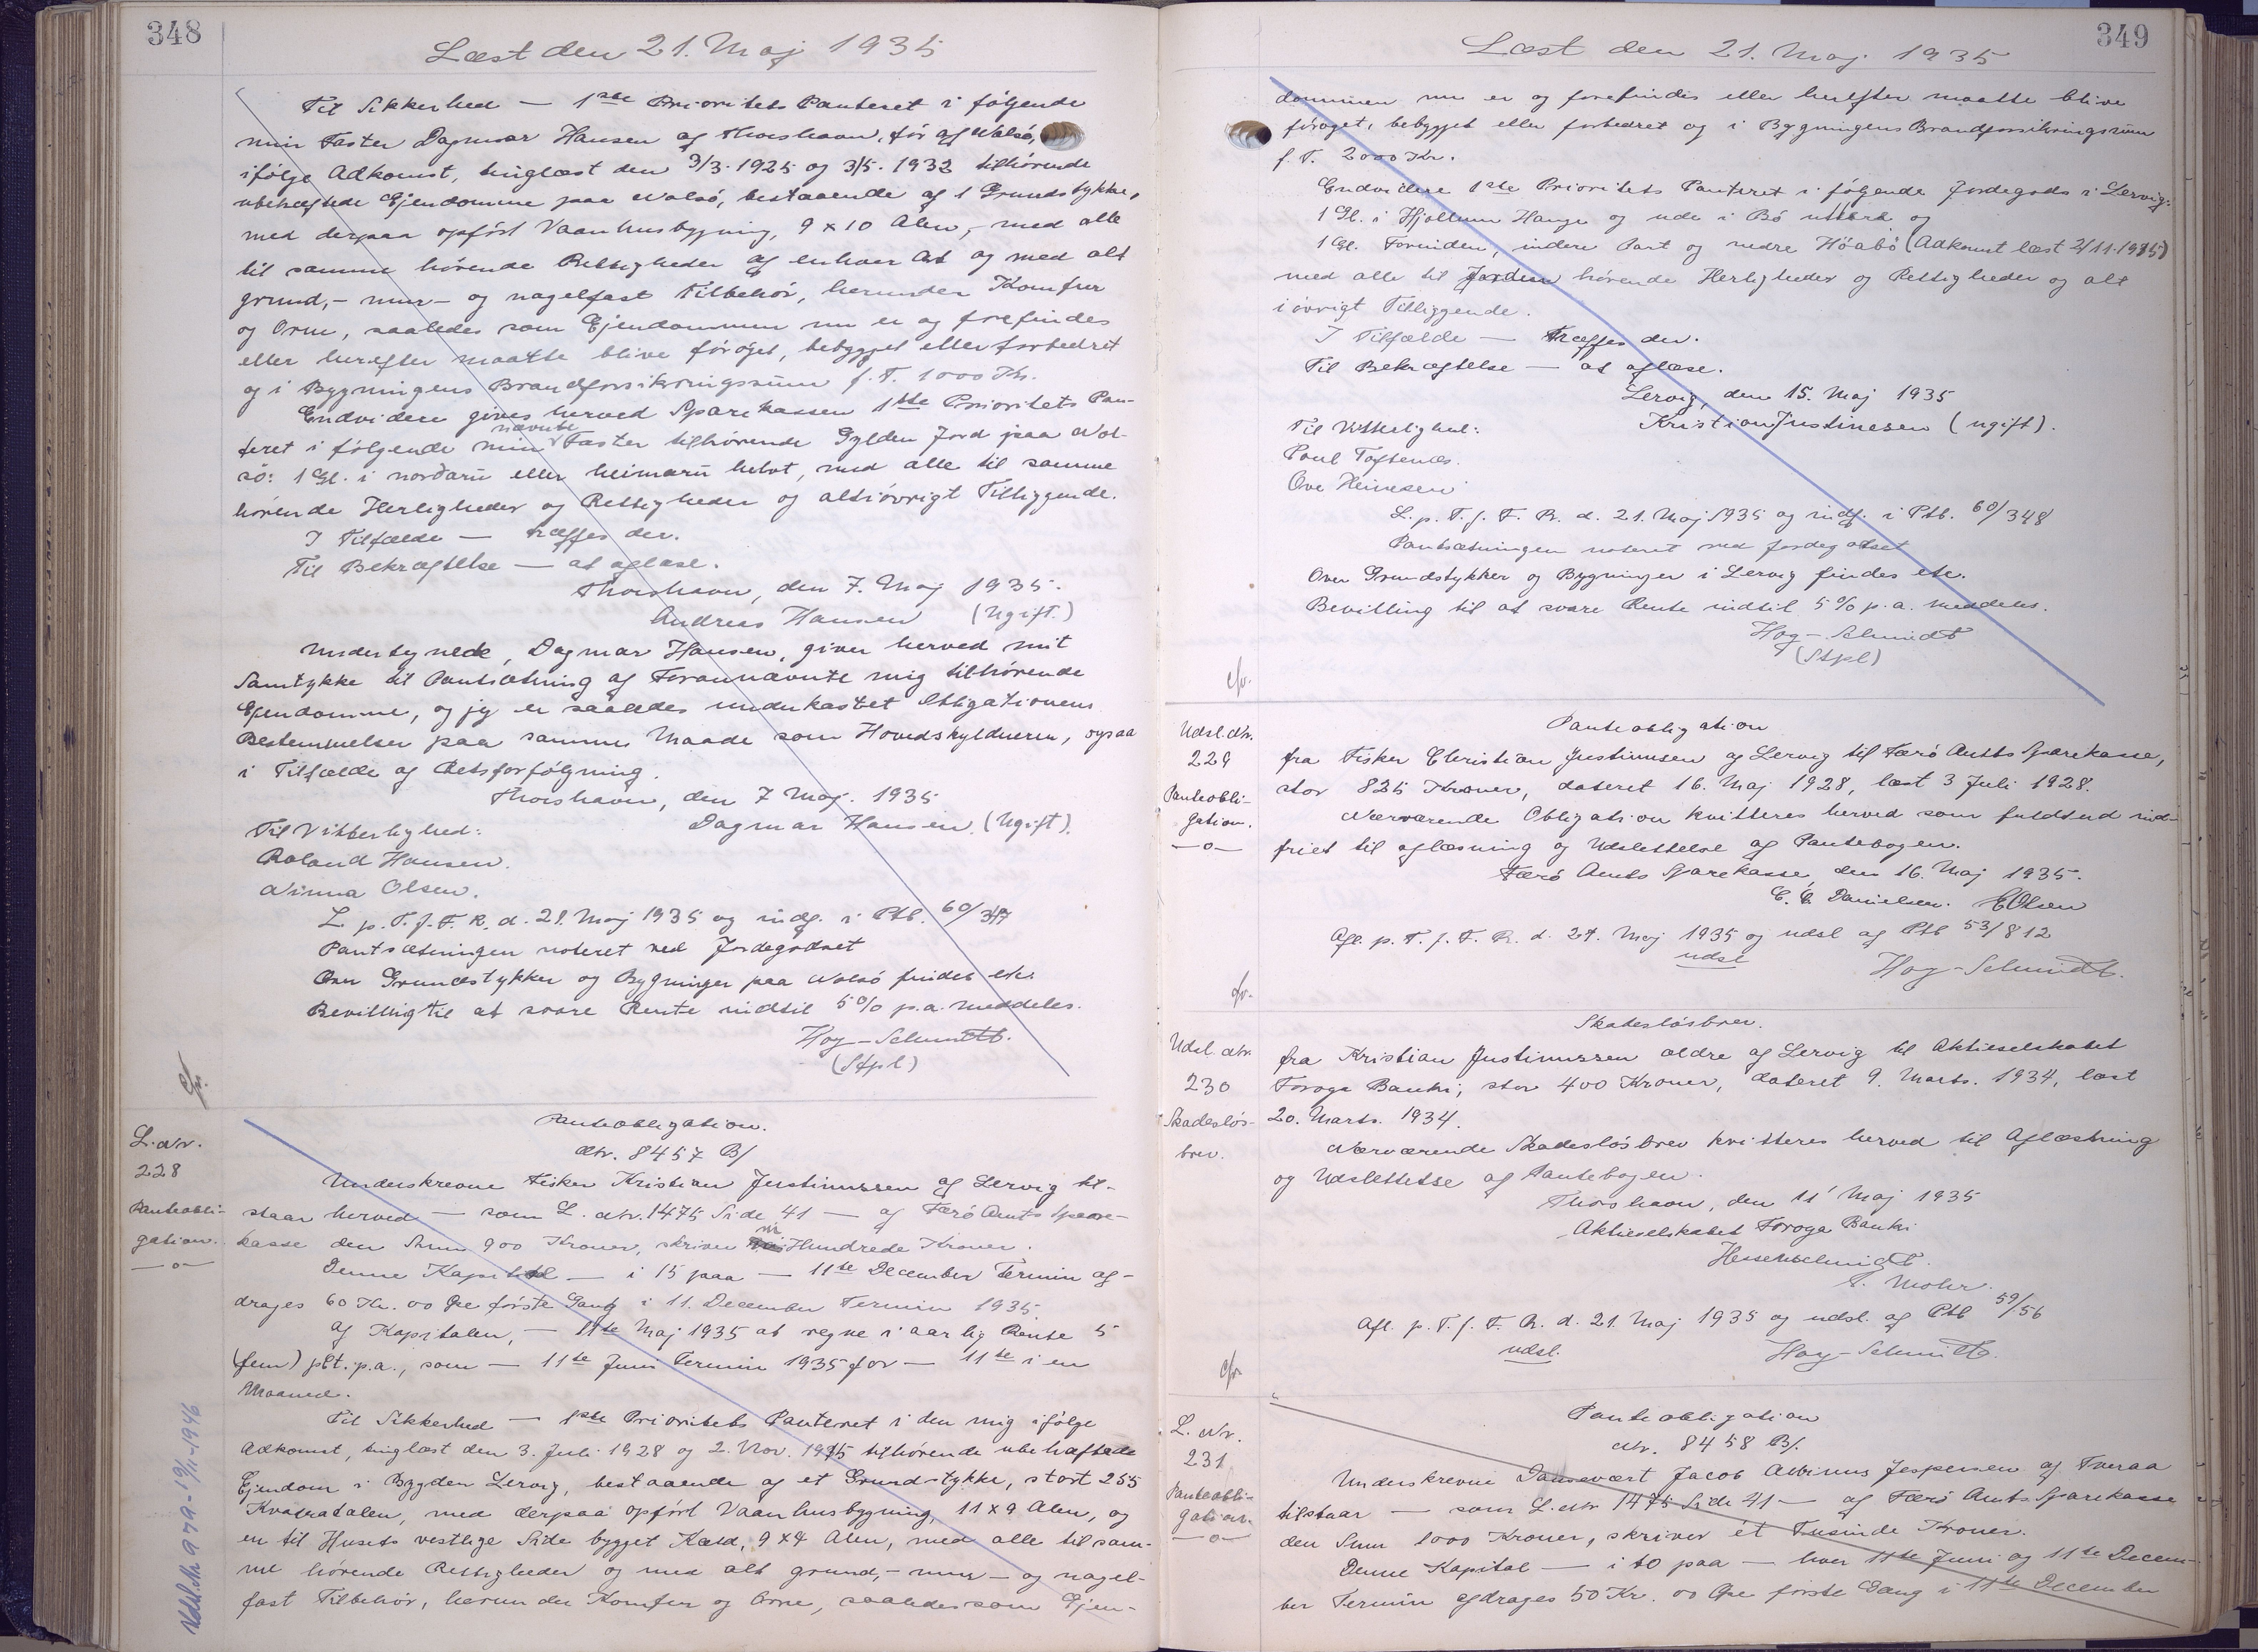 348
Læst den 21. Maj 1935
Til Sikkerhed — 1ste Prioritets Panteret i følgende
min Faster Dagmar Hansen af Thorshavn, før af Nolsø,
ifølge Adkomst, tinglæst den 3/3. 1925 og 3/5. 1932 tilhørende
ubehæftede Ejendomme paa Nolsø, bestaaende af 1 Grundstykke,
med derpaa opført Vaanhusbygning, 9 x 10 Alen, med alle
til samme hørende Rettigheder af enhver Art og med alt
grund,- mur- og nagelfast Tilbehør, herunder Komfur
og Ovne, saaledes som Ejendommen nu er og forefindes
eller herefter maatte blive forøget, bebygget eller forbedret
og i Bygningens Brandforsikringssum f. T. 1000 Kr.
Endvidere gives herved Sparekassen 1ste Prioritets Pan-
teret i følgende min nævnte Faster tilhørende Gylden Jord paa Nol-
sø: 1 Gl. i norðaru eller heimaru helvt, med alle til samme
hørende Herligheder og Rettigheder og alt iøvrigt Tilliggende.
I Tilfælde — træffes der.
Til Bekræftelse — at aflæse.
Thorshavn, den 7. Maj 1935.
Andreas Hansen (Ugift.)
Undertegnede, Dagmar Hansen, giver herved mit
Samtykke til Pantsætning af Forannævnte mig tilhørende
Ejendomme, og jeg er saaledes underkastet Obligationens
Bestemmelser paa samme Maade som Hovedskyldneren, ogsaa
i Tilfælde af Retsforfølgning.
Thorshavn, den 7 Maj. 1935
Til Vitterlighed: Dagmar Hansen. (Ugift).
Roland Hansen.
Ninna Olsen.
L. p. T. f. F. R. d. 21. Maj 1935 og indf. i Ptb. 60/347
Pantsætningen noteret ved Jordegodset
Over Grundstykker og Bygninger paa Nolsø findes etc.
Bevilling til at svare Rente indtil 5% p.a. meddeles.
Hoy-Schmidt.
(Stpl)
c/r.
Panteobligation.
Nr. 8457 B/
L. Nr.
228
Panteobli-
gation.
—o—
Underskrevne Fisker Kristian Justinussen af Lervig til-
staar herved — som L. Nr. 1475 Side 41 — af Færø Amts Spare-
kasse den Sum 900 Kroner, skriver ni Hundrede Kroner.
Denne Kapital — i 15 paa — 11te December Termin af-
drages 60 Kr. 00 Øre første Gang i 11. December Termin 1935.
Af Kapitalen, — 11te Maj 1935 at regne i aarlig Rente 5
(fem) pCt. p.a., som — 11te Juni Termin 1935 for — 11te i en
Maaned.
Til Sikkerhed — 1ste Prioritets Panteret i den mig ifølge
Adkomst, tinglæst den 3. Juli 1928 og 2. Nov. 1915 tilhørende ubehæftede
Ejendom i Bygden Lervig, bestaaende af et Grundstykke, stort 255
Kvadratalen, med derpaa opført Vaanhusbygning, 11 x 9 Alen, og
en til Husets vestlige Side bygget Kæld, 9 x 4 Alen, med alle til sam-
me hørende Rettigheder og med alt grund,- mur- og nagel-
fast Tilbehør, herunder Komfur og Ovne, saaledes som Ejen-
Udsl. Nr 979 - 19/11-1946
349
Læst den 21. Maj. 1935
dommen nu er og forefindes eller herefter maatte blive
forøget, bebygget eller forbedret og i Bygningens Brandforsikringssum
f. T. 2000 Kr.
Endvidere 1ste Prioritets Panteret i følgende Jordegods i Lervig:
1 Gl. i Hjollum Hauge og ude i Bø uttara og
1 Gl. Forinden, indere Part og nedre Høabø (Adkomst læst 2/11. 1915)
med alle til Jorden hørende Herligheder og Rettigheder og alt
iøvrigt Tilliggende.
I Tilfælde — træffes der.
Til Bekræftelse — at aflæse.
Lervig, den 15. Maj 1935
Til Vitterlighed: Kristian Justinesen (ugift).
Poul Toftenæs.
Ove Heinesen
L. p. T. f. F. R. d. 21. Maj 1935 og indf. i Ptb. 60/348
Pantsætningen noteret ved Jordegodset
Over Grundstykker og Bygninger i Lervig findes etc.
Bevilling til at svare Rente indtil 5% p.a. meddeles.
Hoy-Schmidt
(Stpl)
c/r.
Panteobligation
Udsl. Nr.
229
Panteobli-
gation.
—o—
fra Fisker Christian Justinusen af Lervig til Færø Amts Sparekasse,
stor 825 Kroner, dateret 16. Maj 1928, læst 3 Juli 1928.
Nærværende Obligation kvitteres herved som fuldtud ind-
friet til aflæsning og Udslettelse af Pantebogen.
Færø Amts Sparekasse, den 16. Maj 1935.
C. C. Danielsen. E Olsen
Afl. p. T. f. F. R. d. 21. Maj 1935 og udsl. af Ptb 53/812
udsl Hoy-Schmidt.
c/r.
Skadesløsbrev.
Udsl. Nr.
230
Skadesløs-
brev.
fra Kristian Justinussen ældre af Lervig til Aktieselskabet
Føroya Banki, stor 400 Kroner, dateret 9. Marts. 1934, læst
20. Marts. 1934.
Nærværende Skadesløsbrev kvitteres herved til Aflæsning
og Udslettelse af Pantebogen.
Thorshavn, den 11' Maj 1935
Aktieselskabet Føroya Banki
P. Mohr.
Afl. p. T. f. F. R. d. 21. Maj 1935 og udsl. af Ptb 59/56
udsl. Hoy-Schmidt.
c/r
Panteobligation
Nr. 8458 B/.
L. Nr.
231
Panteobli-
gation.
—o—
Underskrevne Jacob Albinus Jespersen af Tveraa
tilstaar — som L. Nr 1475 Side 41 — af Færø Amts Sparekasse
den Sum 1000 Kroner, skriver ét Tusinde Kroner.
Denne Kapital — i 10 paa — hver 11te Juni og 11te Decem-
ber Termin afdrages 50 Kr. 00 Øre første Gang i 11te December